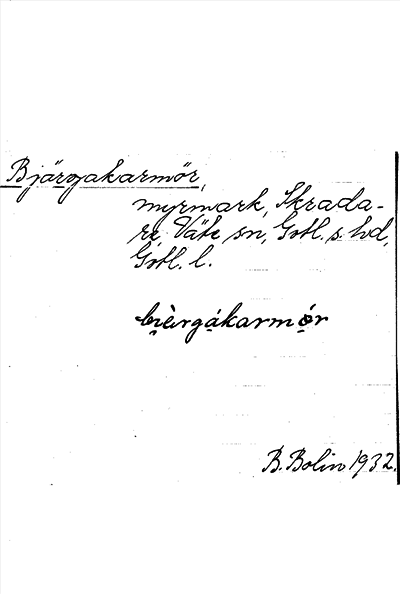 Bjärgakarmör,
myrmark, Skrada-
re, Väte sn, Gotl. s. hd,
Gotl. l.
bièrgákarmór
B. Bolin 1932.